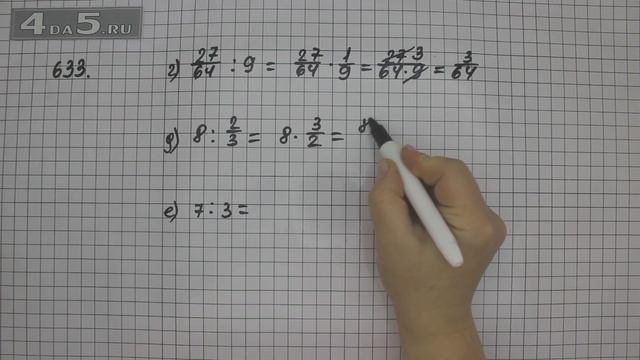 4DA5.RU
633. г) 27/64 : 9 = 27/64 · 1/9 = 27 3/64·9 = 3/64
д) 8 : 2/3 = 8 · 3/2 = 8
е) 7 : 3 =